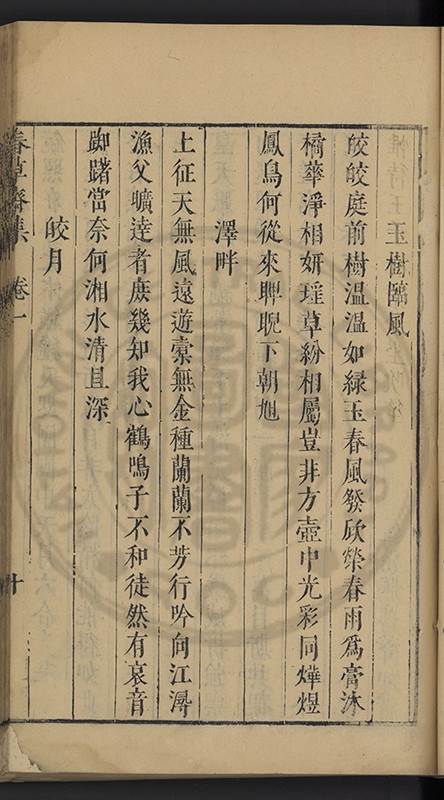 玉樹臨風
皎皎庭前樹溫溫如緑玉春風發欣榮春雨爲膏沐
橘華淨相妍瑤草紛相屬豈非方壺中光彩同燁煜
鳳鳥何從來睥睨下朝旭
澤畔
上征天無風遠遊橐無金種蘭蘭不芳行吟向江潯
漁父曠達者庶幾知我心鶴鳴子不和徒然有哀音
踟躇當奈何湘水清且深
皎月
春草齋集 卷一 十